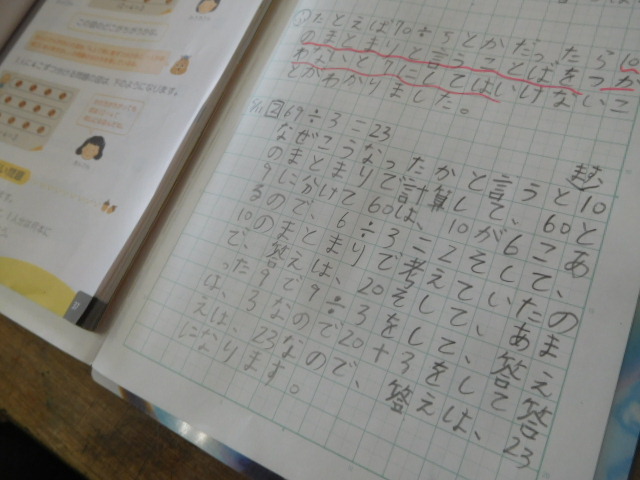 この図のどこがちがうかな。
下のようになります。
い問題
たとえば70÷5とかだったら10
のまとまりと言うことばをつか
わないと7にしてはいけないこ
とがわかりました。
69÷3=23
なぜこうなったかと言うと10
のまとまりで計算して、60と
9にかけて60は、10が6こあ
るので、6÷3=2そして、
10のまとまりで考えていたの
で、答えは、20そして、あま
った9で9÷3をして、答え
は、3なので20+3をして答
えは、23なので、答えは、23
になります。